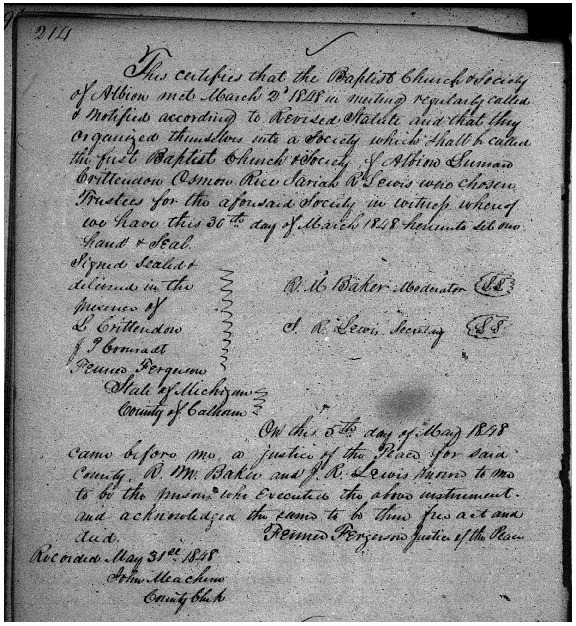 214
This certifies that the Baptist Church & Society
of Albion met March 2d 1848 in meeting regularly called
& notified according to Revised Statute and that they
organized themselves into a Society which shall be called
the first Baptist Church & Society of Albion Luman
Crittendon Osmon Rice Jariah R Lewis were chosen
Trustees for the aforesaid Society in witness whereof
we have this 30th day of March 1848 hereunto set our
hand & Seal.
Signed Sealed &
delivered in the
presence of
R. M Baker Moderator SS
L Crittendon
J. R. Lewis Secretary SS
J P
Fenner Ferguson
State of Michigan
County of Calhoun
On this 5th day of May 1848
came before me, a justice of the Peace for said
County, R. M. Baker and J. R. Lewis known to me
to be the persons who executed the above instrument
and acknowledged the same to be their free act and
deed. Fenner Ferguson Justice of the Peace
Recorded May 31st 1848
John Meachem
County Clerk